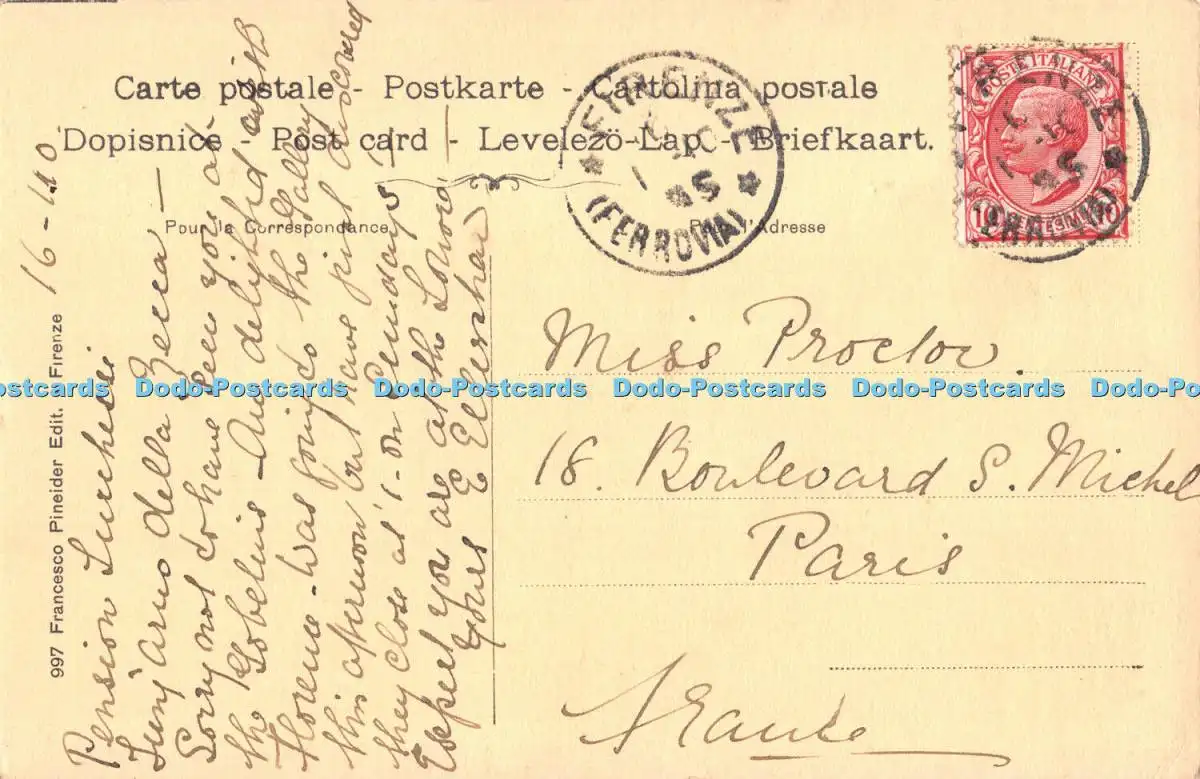 Carte postale - Postkarte - Cartolina postale
Dopisnice - Post card - Levelezö-Lap - Briefkaart.
Pour la Correspondance
Pour l'Adresse
FIRENZE
(FERROVIA)
POSTE ITALIANE
997 Francesco Pineider Edit. Firenze
16-4.10
Pension Lucchesi
Lung'arno della Zecca —
Sorry not to have seen you at
the Gobelins - Am delighted with
Florence - was going to the Gallery
this afternoon but have just discovered
they close at 1 - on Sundays!
Expect you are at the Louvre
Yours E
Miss Proctor.
18. Boulevard S. Michel
Paris
France
Dodo-Postcards Dodo-Postcards Dodo-Postcards Dodo-Postcards Dodo-Postcards